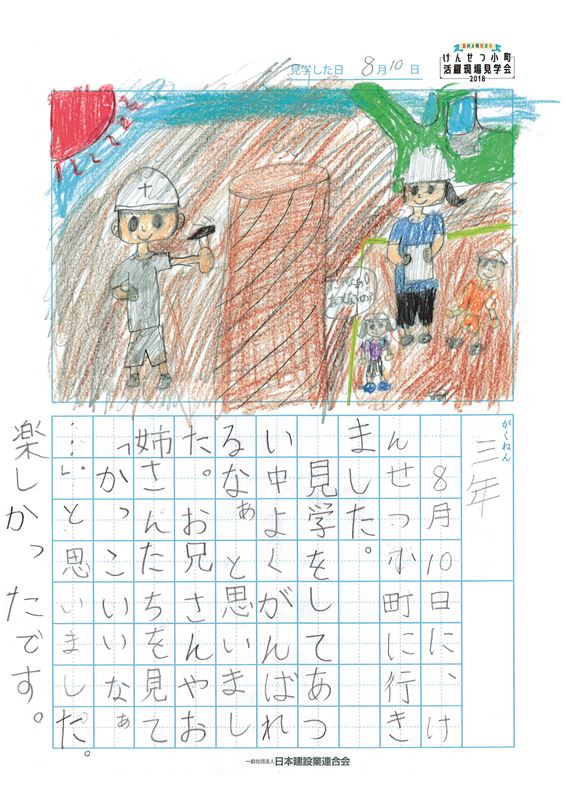 見学した日 8月10日
けんせつ小町
活躍現場見学会
2018
がくねん
三年
8月10日に、け
んせつ小町に行き
ました。
見学をしてあつ
い中よくがんばれ
るなぁと思いまし
た。お兄さんやお
姉さんたちを見て
「かっこいいなぁ
……」と思いました。
楽しかったです。
一般社団法人 日本建設業連合会